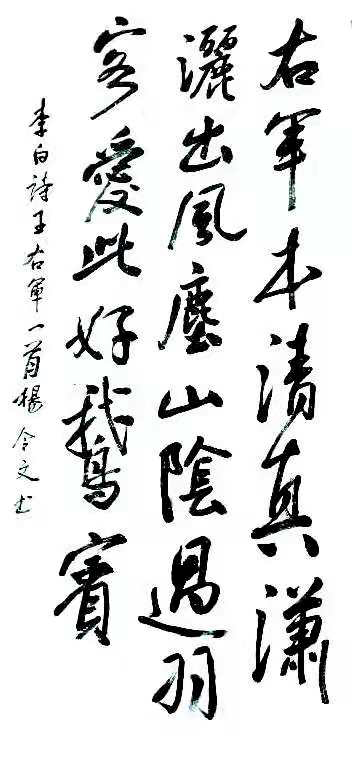 右軍本清真瀟
灑出風塵山陰過羽
客愛此好鵝賓
李白詩王右軍一首楊令文书